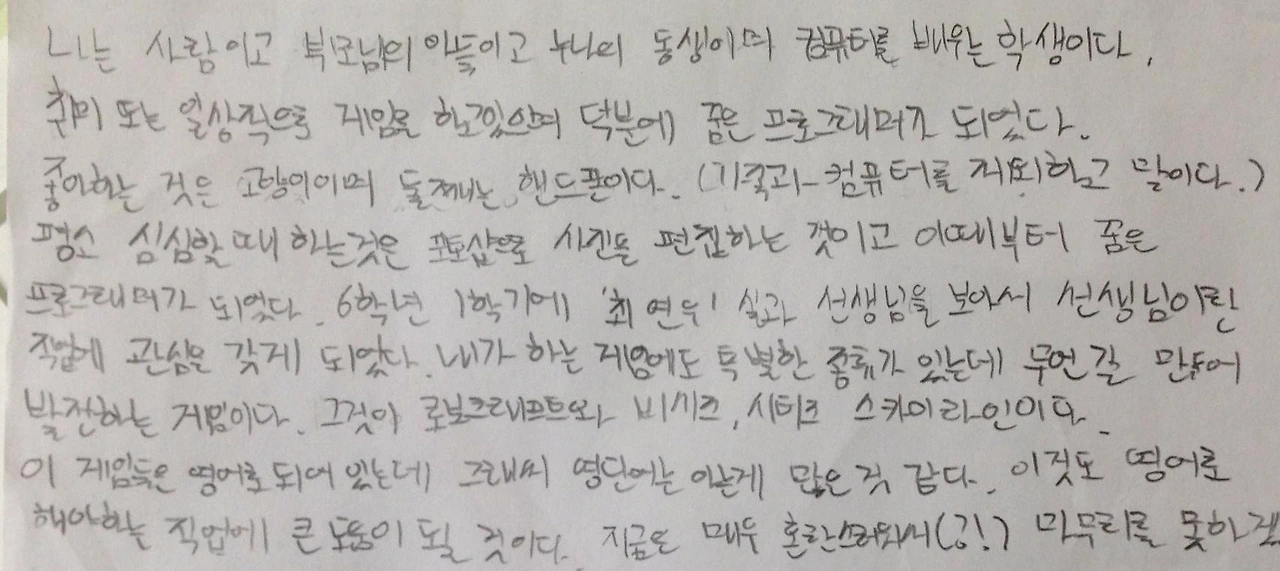 나는 사람이고 부모님의 아들이고 누나의 동생이며 컴퓨터를 배우는 학생이다.
취미 또는 일상적으로 게임을 하고있으며 덕분에 꿈은 프로그래머가 되었다.
좋아하는 것은 고양이이며 둘째는 핸드폰이다. (가족과 컴퓨터를 제외하고 말이다.)
평소 심심할때 하는것은 포토샵으로 사진을 편집하는 것이고 이때부터 꿈은
프로그래머가 되었다. 6학년 1학기에 '최연우' 실과 선생님을 보아서 선생님이란
직업에 관심을 갖게 되었다. 내가 하는 게임에도 특별한 종류가 있는데 무언갈 만들어
발전하는 게임이다. 그것이 로보크래프트와 비시즈, 시티즈 스카이라인이다.
이 게임들은 영어로 되어 있는데 그래서 영단어는 아는게 많은 것 같다. 이것도 영어로
해야하는 직업에 큰 도움이 될 것이다. 지금은 매우 혼란스러워서 마무리를 못하겠